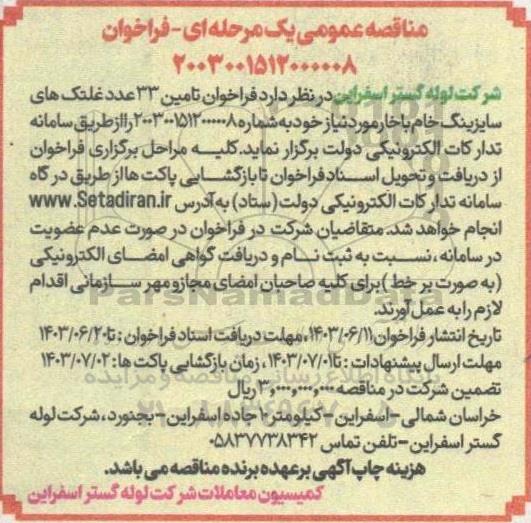 مناقصه عمومی یک مرحله ای - فراخوان
۲۰۰۳۰۰۱۵۱۲۰۰۰۰۰۸
شرکت لوله گستر اسفراین در نظر دارد فراخوان تامین ۳۳ عدد غلتک های
سایزینگ خام یا خار مورد نیاز خود به شماره ۲۰۰۳۰۰۱۵۱۲۰۰۰۰۰۸ را از طریق سامانه
تدارکات الکترونیکی دولت برگزار نماید. کلیه مراحل برگزاری فراخوان
از دریافت و تحویل اسناد فراخوان تا بازگشایی پاکت ها از طریق درگاه
سامانه تدارکات الکترونیکی دولت (ستاد) به آدرس www.Setadiran.ir
انجام خواهد شد. متقاضیان شرکت در فراخوان در صورت عدم عضویت
در سامانه، نسبت به ثبت نام و دریافت گواهی امضای الکترونیکی
(به صورت بر خط) برای کلیه صاحبان امضای مجاز و مهر سازمانی اقدام
لازم را به عمل آورند.
تاریخ انتشار فراخوان ۱۴۰۳/۰۶/۱۱، مهلت دریافت اسناد فراخوان: تا ۱۴۰۳/۰۶/۲۰
مهلت ارسال پیشنهادات: تا ۱۴۰۳/۰۷/۰۱، زمان بازگشایی پاکت ها: ۱۴۰۳/۰۷/۰۲
تضمین شرکت در مناقصه ۳,۰۰۰,۰۰۰,۰۰۰ ریال
خراسان شمالی - اسفراین - کیلومتر ۱۰ جاده اسفراین - بجنورد، شرکت لوله
گستر اسفراین - تلفن تماس ۰۵۸۳۷۷۳۸۳۴۲
هزینه چاپ آگهی بر عهده برنده مناقصه می باشد.
کمیسیون معاملات شرکت لوله گستر اسفراین
ParsNamadData